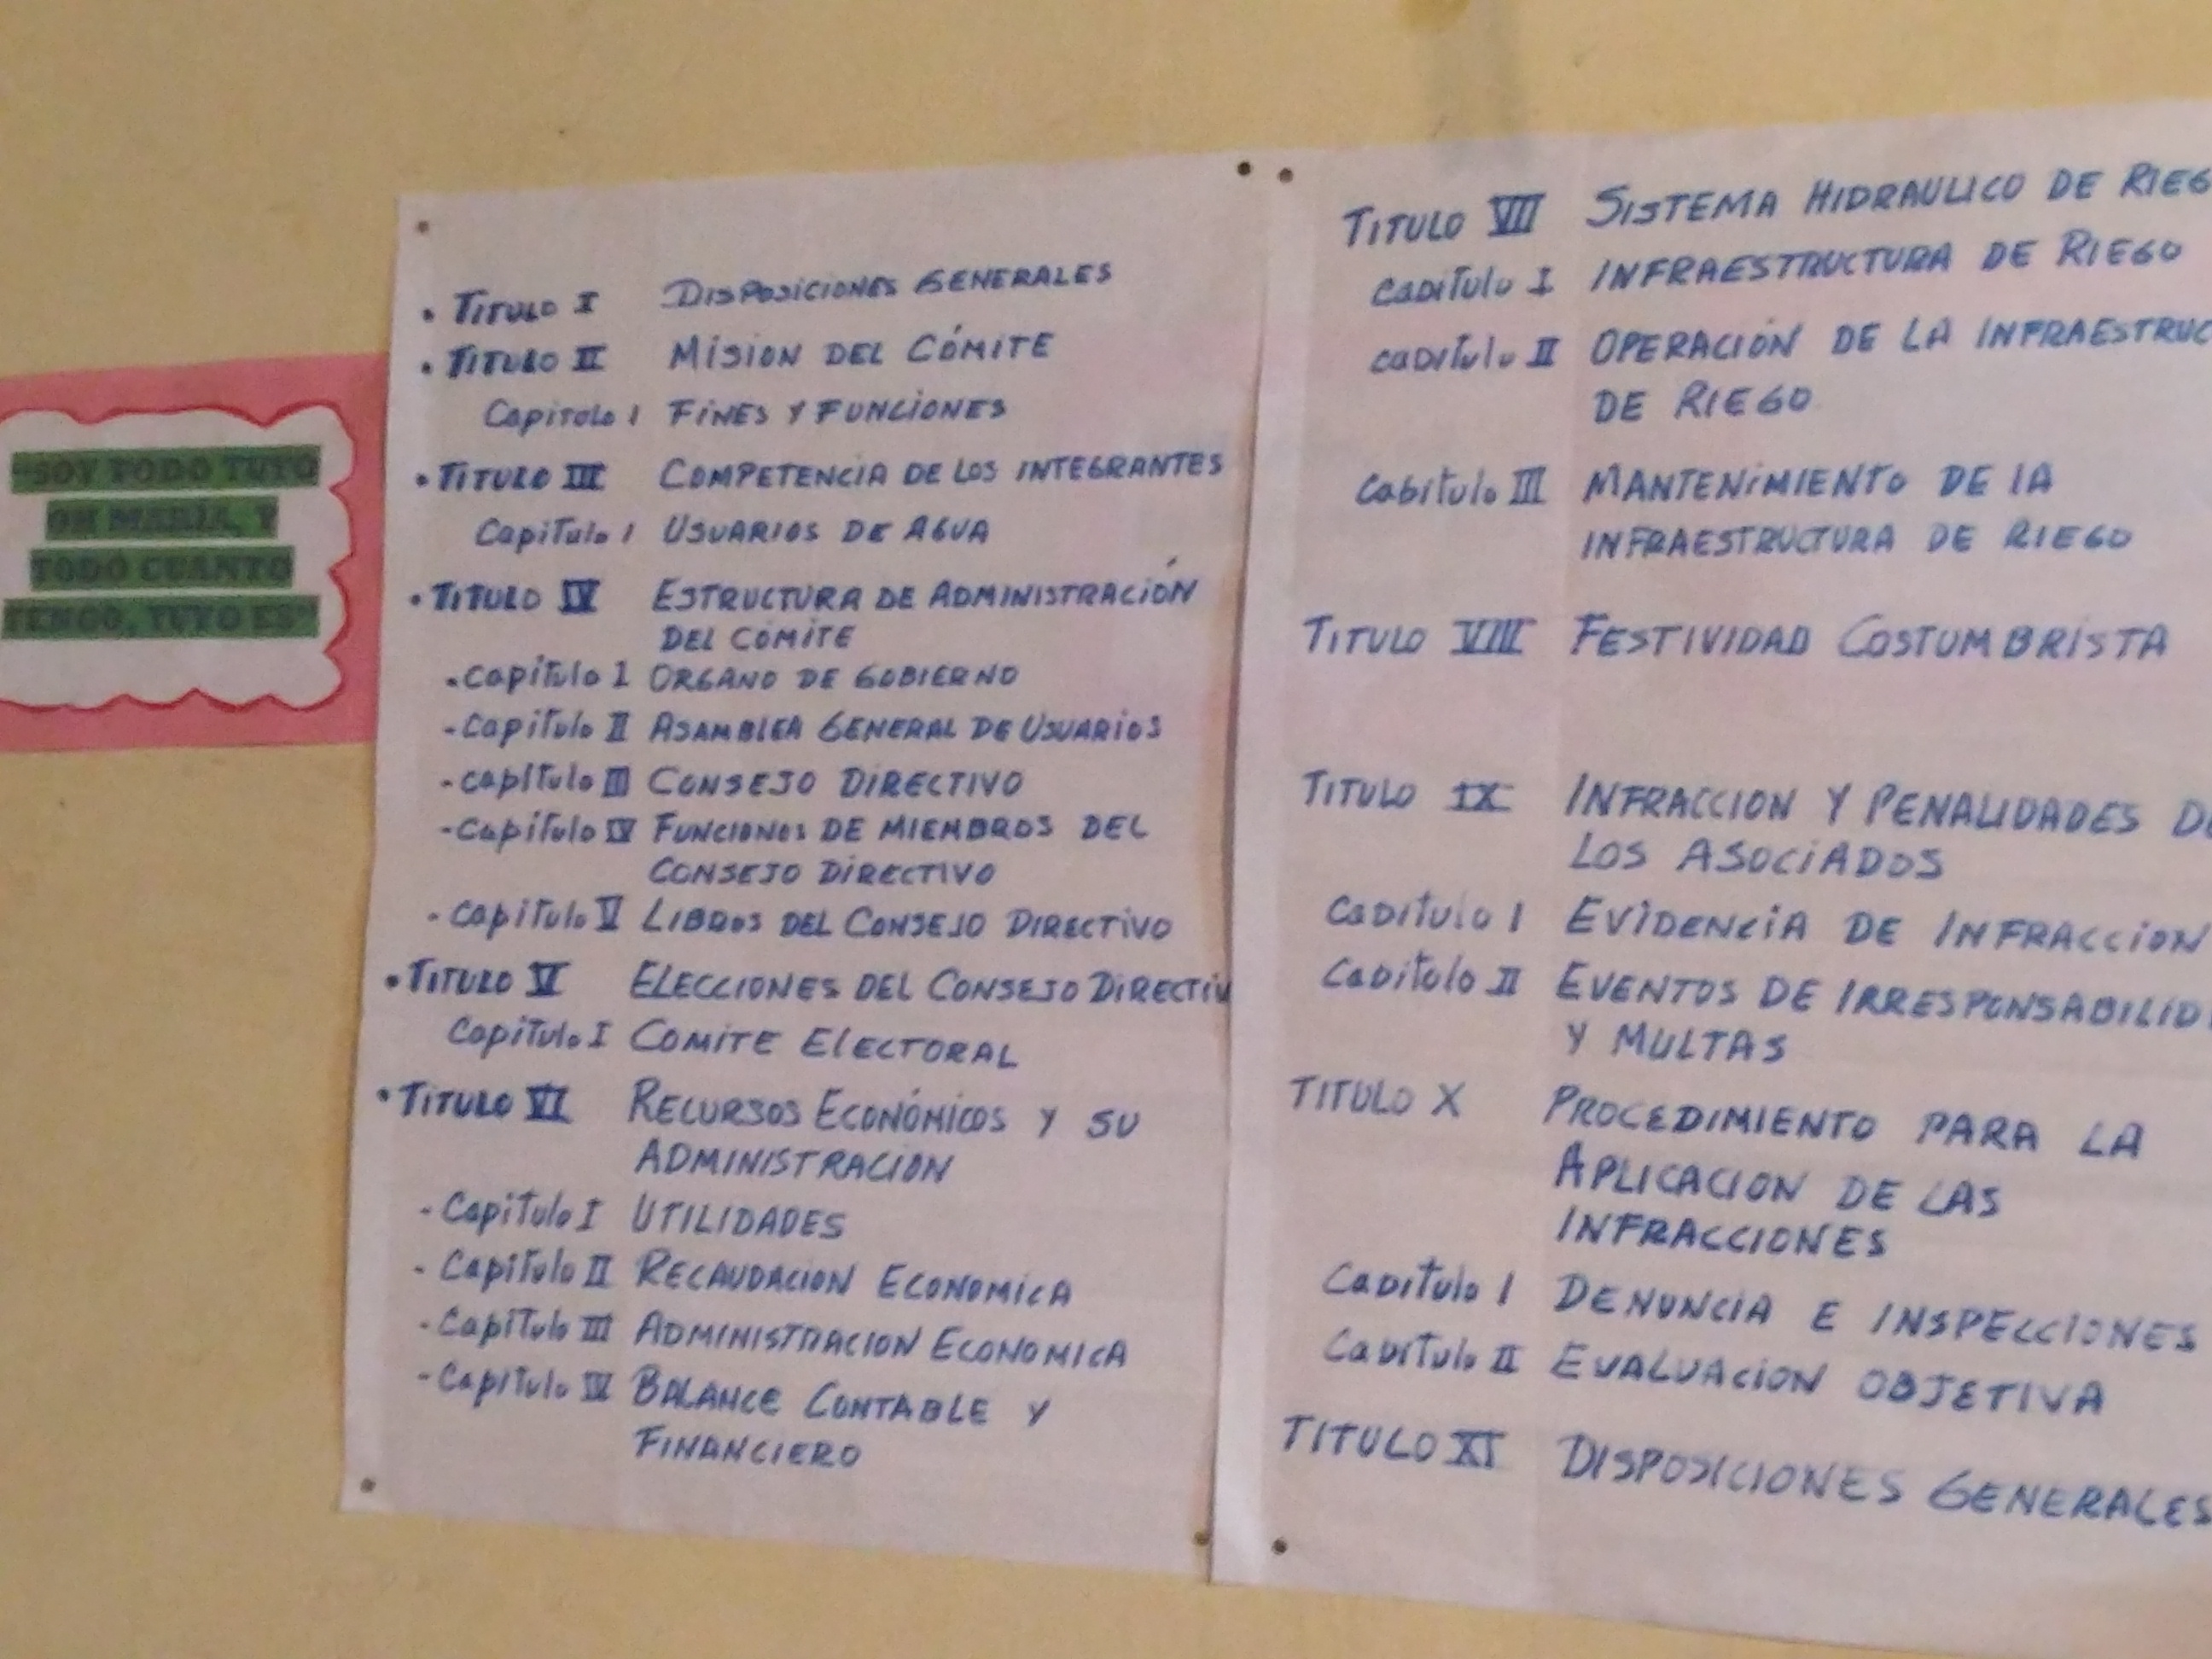 "SOY TODO TUYO
OH MARÍA, Y
TODO CUANTO
TENGO, TUYO ES"
• TITULO I DISPOSICIONES GENERALES
• TITULO II MISION DEL CÓMITE
Capitulo 1 FINES Y FUNCIONES
• TITULO III COMPETENCIA DE LOS INTEGRANTES
Capitulo 1 USUARIOS DE AGUA
• TITULO IV ESTRUCTURA DE ADMINISTRACIÓN
DEL CÓMITE
• Capitulo 1 ORGANO DE GOBIERNO
- Capitulo II ASAMBLEA GENERAL DE USUARIOS
- Capitulo III CONSEJO DIRECTIVO
- Capitulo IV FUNCIONES DE MIEMBROS DEL
CONSEJO DIRECTIVO
- Capitulo V LIBROS DEL CONSEJO DIRECTIVO
• TITULO V ELECCIONES DEL CONSEJO DIRECTIV
Capitulo I COMITE ELECTORAL
• TITULO VI RECURSOS ECONÓMICOS Y SU
ADMINISTRACION
- Capitulo I UTILIDADES
- Capitulo II RECAUDACION ECONOMICA
- Capitulo III ADMINISTRACION ECONOMICA
- Capitulo IV BALANCE CONTABLE Y
FINANCIERO
TITULO VII SISTEMA HIDRAULICO DE RIEG
Capitulo I INFRAESTRUCTURA DE RIEGO
Capitulo II OPERACIÓN DE LA INFRAESTRUC
DE RIEGO
Capitulo III MANTENIMIENTO DE LA
INFRAESTRUCTURA DE RIEGO
TITULO VIII FESTIVIDAD COSTUMBRISTA
TITULO IX INFRACCION Y PENALIDADES DE
LOS ASOCIADOS
Capitulo 1 EVIDENCIA DE INFRACCION
Capitulo II EVENTOS DE IRRESPONSABILID
Y MULTAS
TITULO X PROCEDIMIENTO PARA LA
APLICACION DE LAS
INFRACCIONES
Capitulo 1 DENUNCIA E INSPECCIONES
Capitulo II EVALUACION OBJETIVA
TITULO XI DISPOSICIONES GENERALES